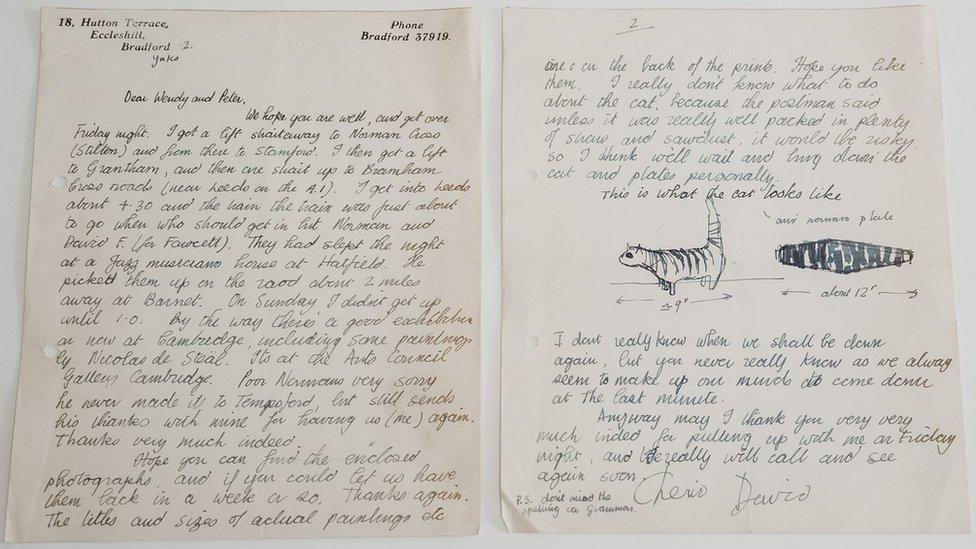 18, Hutton Terrace,
Eccleshill,
Bradford 2.
Yorks
Phone
Bradford 37919.
Dear Wendy and Peter,
We hope you are well, and got over
Friday night. I got a lift straitaway to Norman Cross
(Stilton) and from there to Stamford. I then got a lift
to Grantham, and then one strait up to Bramham
Cross roads (near Leeds on the A.1). I got into Leeds
about 4.30 and the train the train was just about
to go when who should get in but Norman and
David F. (for Fawcett). They had slept the night
at a Jazz musicians house at Hatfield. He
picked them up on the road about 2 miles
away at Barnet. On Sunday I didnt get up
until 1.0. By the way there's a good exhibition
on now at Cambridge, including some paintings
by Nicolas de Stael. Its at the Arts Council
Gallery Cambridge. Poor Normans very sorry
he never made it to Tempsford, but still sends
his thanks with mine for having us (me) again.
Thanks very much indeed.
Hope you can find the enclosed
photographs, and if you could let us have
them back in a week or so. Thanks again.
The titles and sizes of actual paintings etc
2
are on the back of the prints. Hope you like
them. I really don't know what to do
about the cat, because the postman said
unless it was really well packed in plenty
of straw and sawdust, it would be risky,
so I think we'll wait and bring down the
cat and plates personally.
This is what the cat looks like
and normans plate
9"
about 12"
I dont really know when we shall be down
again, but you never really know as we always
seem to make up our minds to come down
at the last minute.
Anyway may I thank you very very
much indeed for putting up with me on Friday
night, and really will call and see
again soon
Cherio David
P.S. don't mind the
spelling or Grammar.